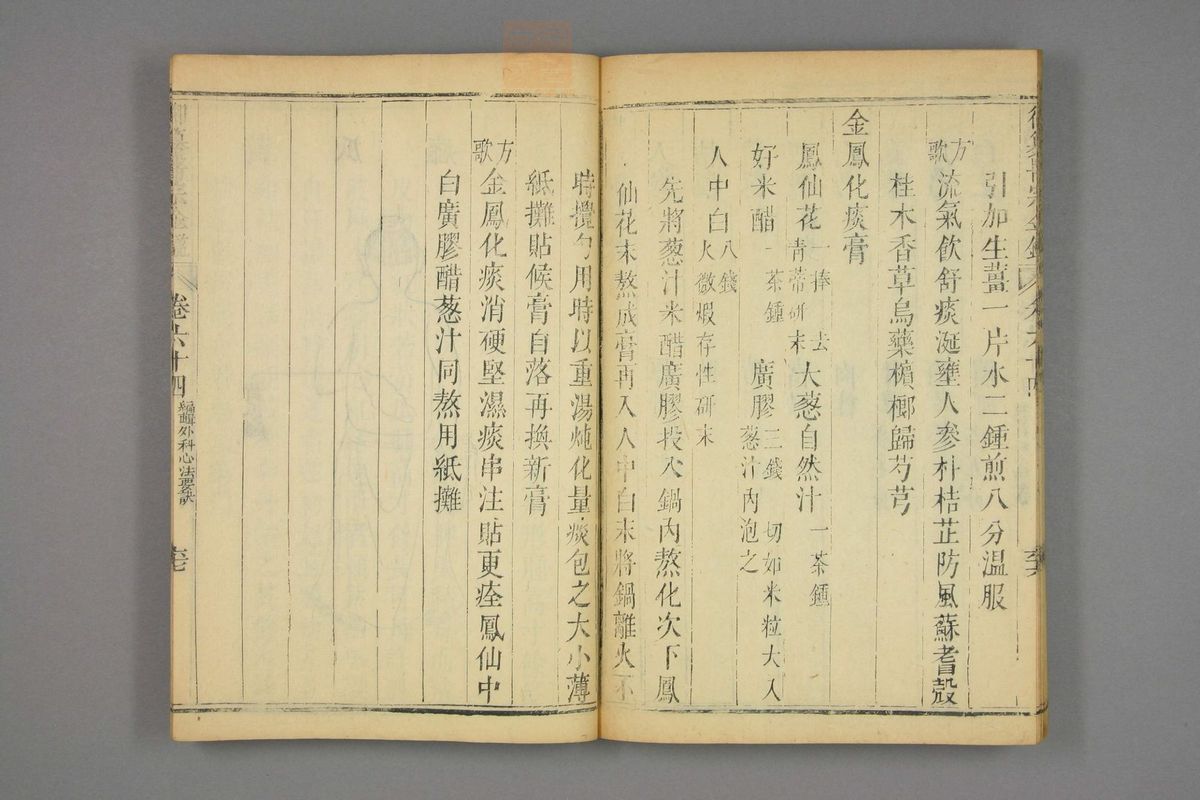 引加生薑一片水二鍾煎八分溫服
方歌流氣飲舒痰涎壅人參朴桔芷防風蘇耆殼
桂木香草烏藥檳榔歸芍芎
金鳳化痰膏
鳳仙花一捧去青蒂研末大葱自然汁一茶鍾
好米醋一茶鍾廣膠三錢切如米粒大入葱汁內泡之
人中白八錢火微煅存性研末
先將葱汁米醋廣膠投入鍋內熬化次下鳳
仙花末熬成膏再入人中白末將鍋離火不
時攪勻用時以重湯燉化量痰包之大小薄
紙攤貼候膏自落再換新膏
方歌金鳳化痰消硬堅濕痰串注貼更痊鳳仙中
白廣膠醋葱汁同熬用紙攤
卷六十四 編輯外科心法要訣